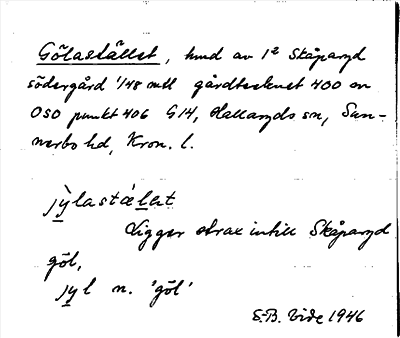 Gölastället, hmd av 1² Skåparyd
södergård 1/48 mtl gårdtecknet 400 m
OSO punkt 406 G14, Hallaryds sn, Sun-
nerbo hd, Kron. l.
jỳlastǽlət
Ligger strax intill Skåparyd
göl,
jyl n. 'göl'
S.-B. Vide 1946